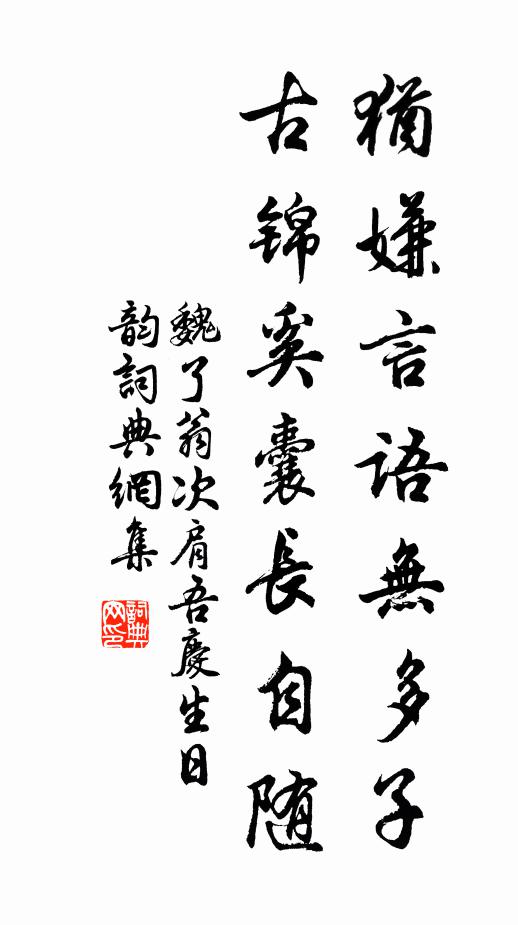 猶嫌言語無多子
古錦奚囊長自隨
魏了翁次肩吾慶生日
韵詞典網集
詞典網印